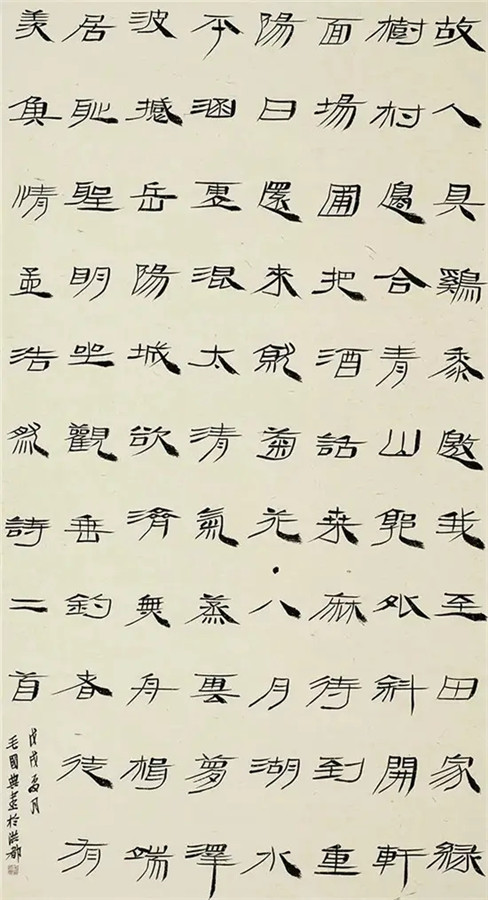 故人具鷄黍邀我至田家緑
樹村邊合青山郭外斜開軒
面場圃把酒話桒麻待到重
陽日還來就菊花八月湖水
平涵虛混太清氣蒸雲夢澤
波撼岳陽城欲濟無舟楫端
居恥聖明坐觀垂釣者徒有
羨魚情孟浩然詩二首
戊戌夏月
毛國典書於洪都